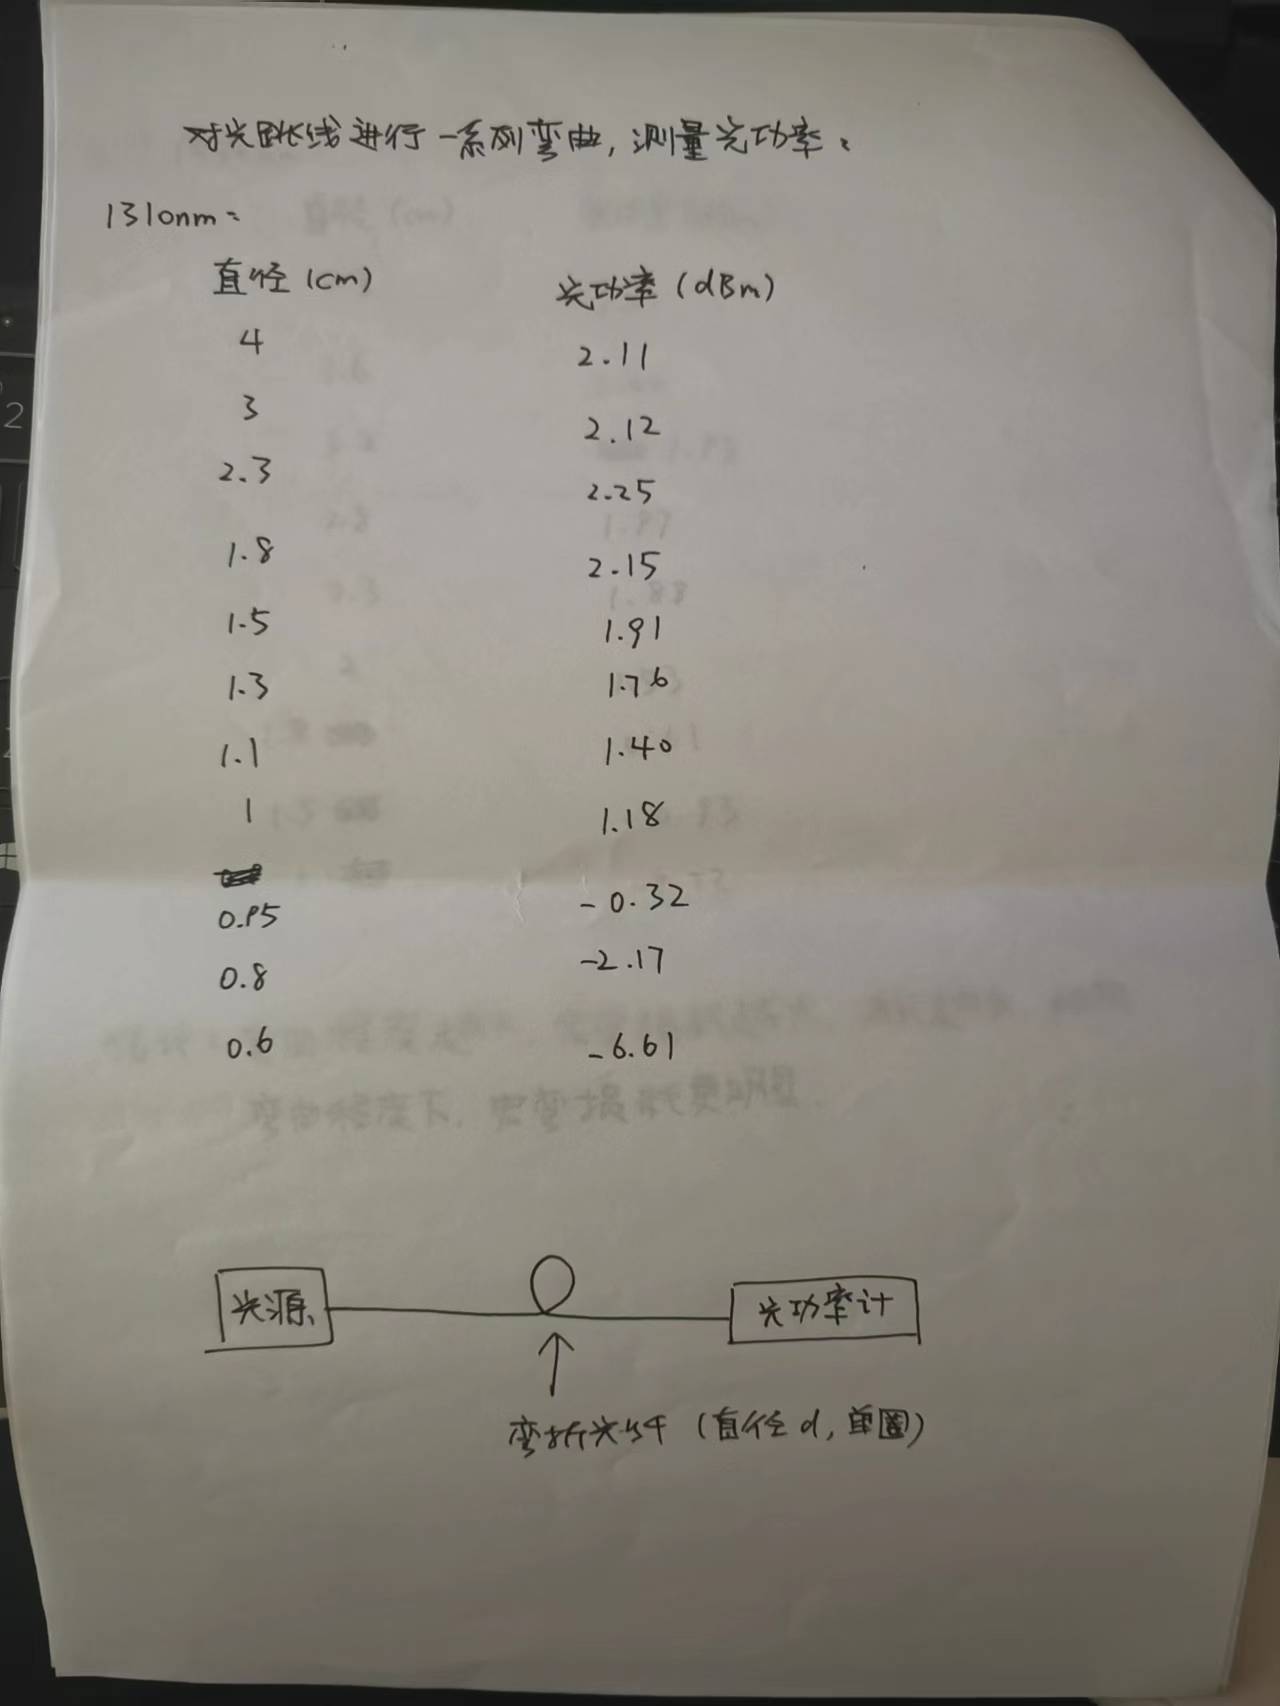 对光跳线进行一系列弯曲，测量光功率：
1310nm：
直径(cm) 光功率(dBm)
4 2.11
3 2.12
2.3 2.25
1.8 2.15
1.5 1.91
1.3 1.76
1.1 1.40
1 1.18
-0.32
0.8 -2.17
0.6 -6.61
光源 光功率计
弯折光纤(直径d，单圈)